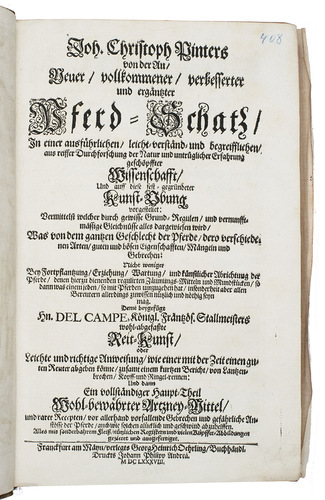 408
Joh. Christoph Pinters
von der Au/
Neuer/ vollkommener/ verbesserter
und ergäntzter
Pferd-Schatz/
In einer ausführlichen/ leicht-verständ- und begreifflichen/
aus reiffer Durchforschung der Natur und untrüglicher Erfahrung
geschöpffter
Wissenschafft/
Und auff diese fest-gegründeter
Kunst-Ubung
vorgestellet:
Vermittelst welcher durch gewisse Grund-Regulen/ und vernunfft-
mässige Gleichnüsse alles dargewiesen wird/
Was von dem gantzen Geschlecht der Pferde/ dero verschiede-
nen Arten/ guten und bösen Eigenschafften/ Mängeln und
Gebrechen:
Nicht weniger
Bey Fortpflantzung/ Erziehung/ Wartung/ und künstlicher Abrichtung der
Pferde/ denen hierzu dienenden regulirten Zäumungs-Mitteln und Mundstücken/ so
dann was einem jeden/ so mit Pferden umzugehen hat/ insonderheit aber allen
Bereutern allerdings zuwissen nützlich und nöthig seyn
mag.
Deme beygefügt
Hn. DEL CAMPE, Königl. Frantzös. Stallmeisters
wohl-abgefaßte
Reit-Kunst/
oder
Leichte und richtige Anweisung/ wie einer mit der Zeit einen gu-
ten Reuter abgeben könne/ zusamt einem kurtzen Bericht/ von Lantzen-
brechen/ Kopff- und Ringel-rennen:
Und dann
Ein vollständiger Haupt-Theil
Wohl-bewährter Artzney-Mittel/
und rarer Recepten/ vor allerhand vorfallende Gebrechen und gefährliche An-
stösse der Pferde/ auch wie solchen glücklich und geschwind abzuhelffen.
Alles mit sonderbahrem Fleiß/ nützlichen Registern und vielen Kupffer-Abbildungen
gezieret und ausgefertiget.
Franckfurt am Mäyn/ verlegts Georg Heinrich Oehrling/ Buchhändl.
Druckts Johann Philipp Andreä.
M DC LXXXVIII.